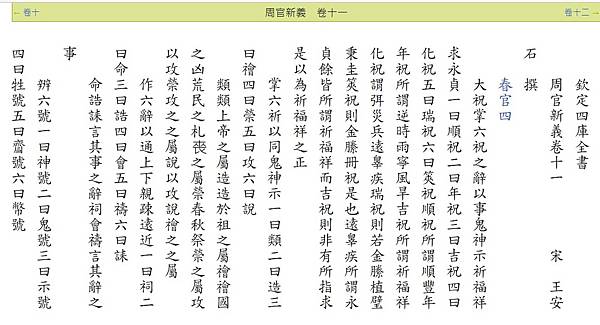 ← 卷十
周官新義　卷十一
卷十二 →
欽定四庫全書
周官新義卷十一　宋　王安
石　撰
春官四
大祝掌六祝之辭以事鬼神示祈福祥
求永貞一曰順祝二曰年祝三曰吉祝四曰
化祝五曰瑞祝六曰筴祝順祝所謂順豐年
年祝所謂逆時雨寧風旱吉祝所謂祈福祥
化祝謂弭災兵遠辠疾瑞祝則若金縢植璧
秉圭筴祝則金縢冊祝是也遠辠疾所謂永
貞餘皆所謂祈福祥而吉祝則非有所指求
是以為祈福祥之正
掌六祈以同鬼神示一曰類二曰造三
曰禬四曰禜五曰攻六曰說
類類上帝之屬造造於祖之屬禬禬國
之凶荒民之札䘮之屬禜春秋祭禜之屬攻
以攻禜攻之之屬說以攻說禬之之屬
作六辭以通上下親疎遠近一曰祠二
曰命三曰誥四曰會五曰禱六曰誄
命誥誄言其事之辭祠會禱言其辭之
事
辨六號一曰神號二曰鬼號三曰示號
四曰牲號五曰齍號六曰幣號